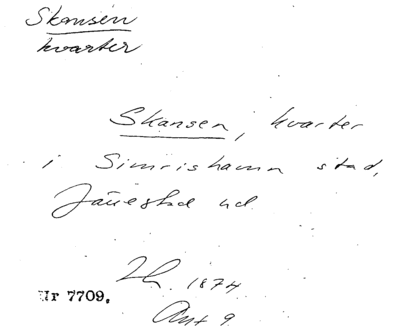 Skansen
kvarter
Skansen, kvarter
i Simrishamn stad,
Järrestad ud
1874
Nr 7709.
9